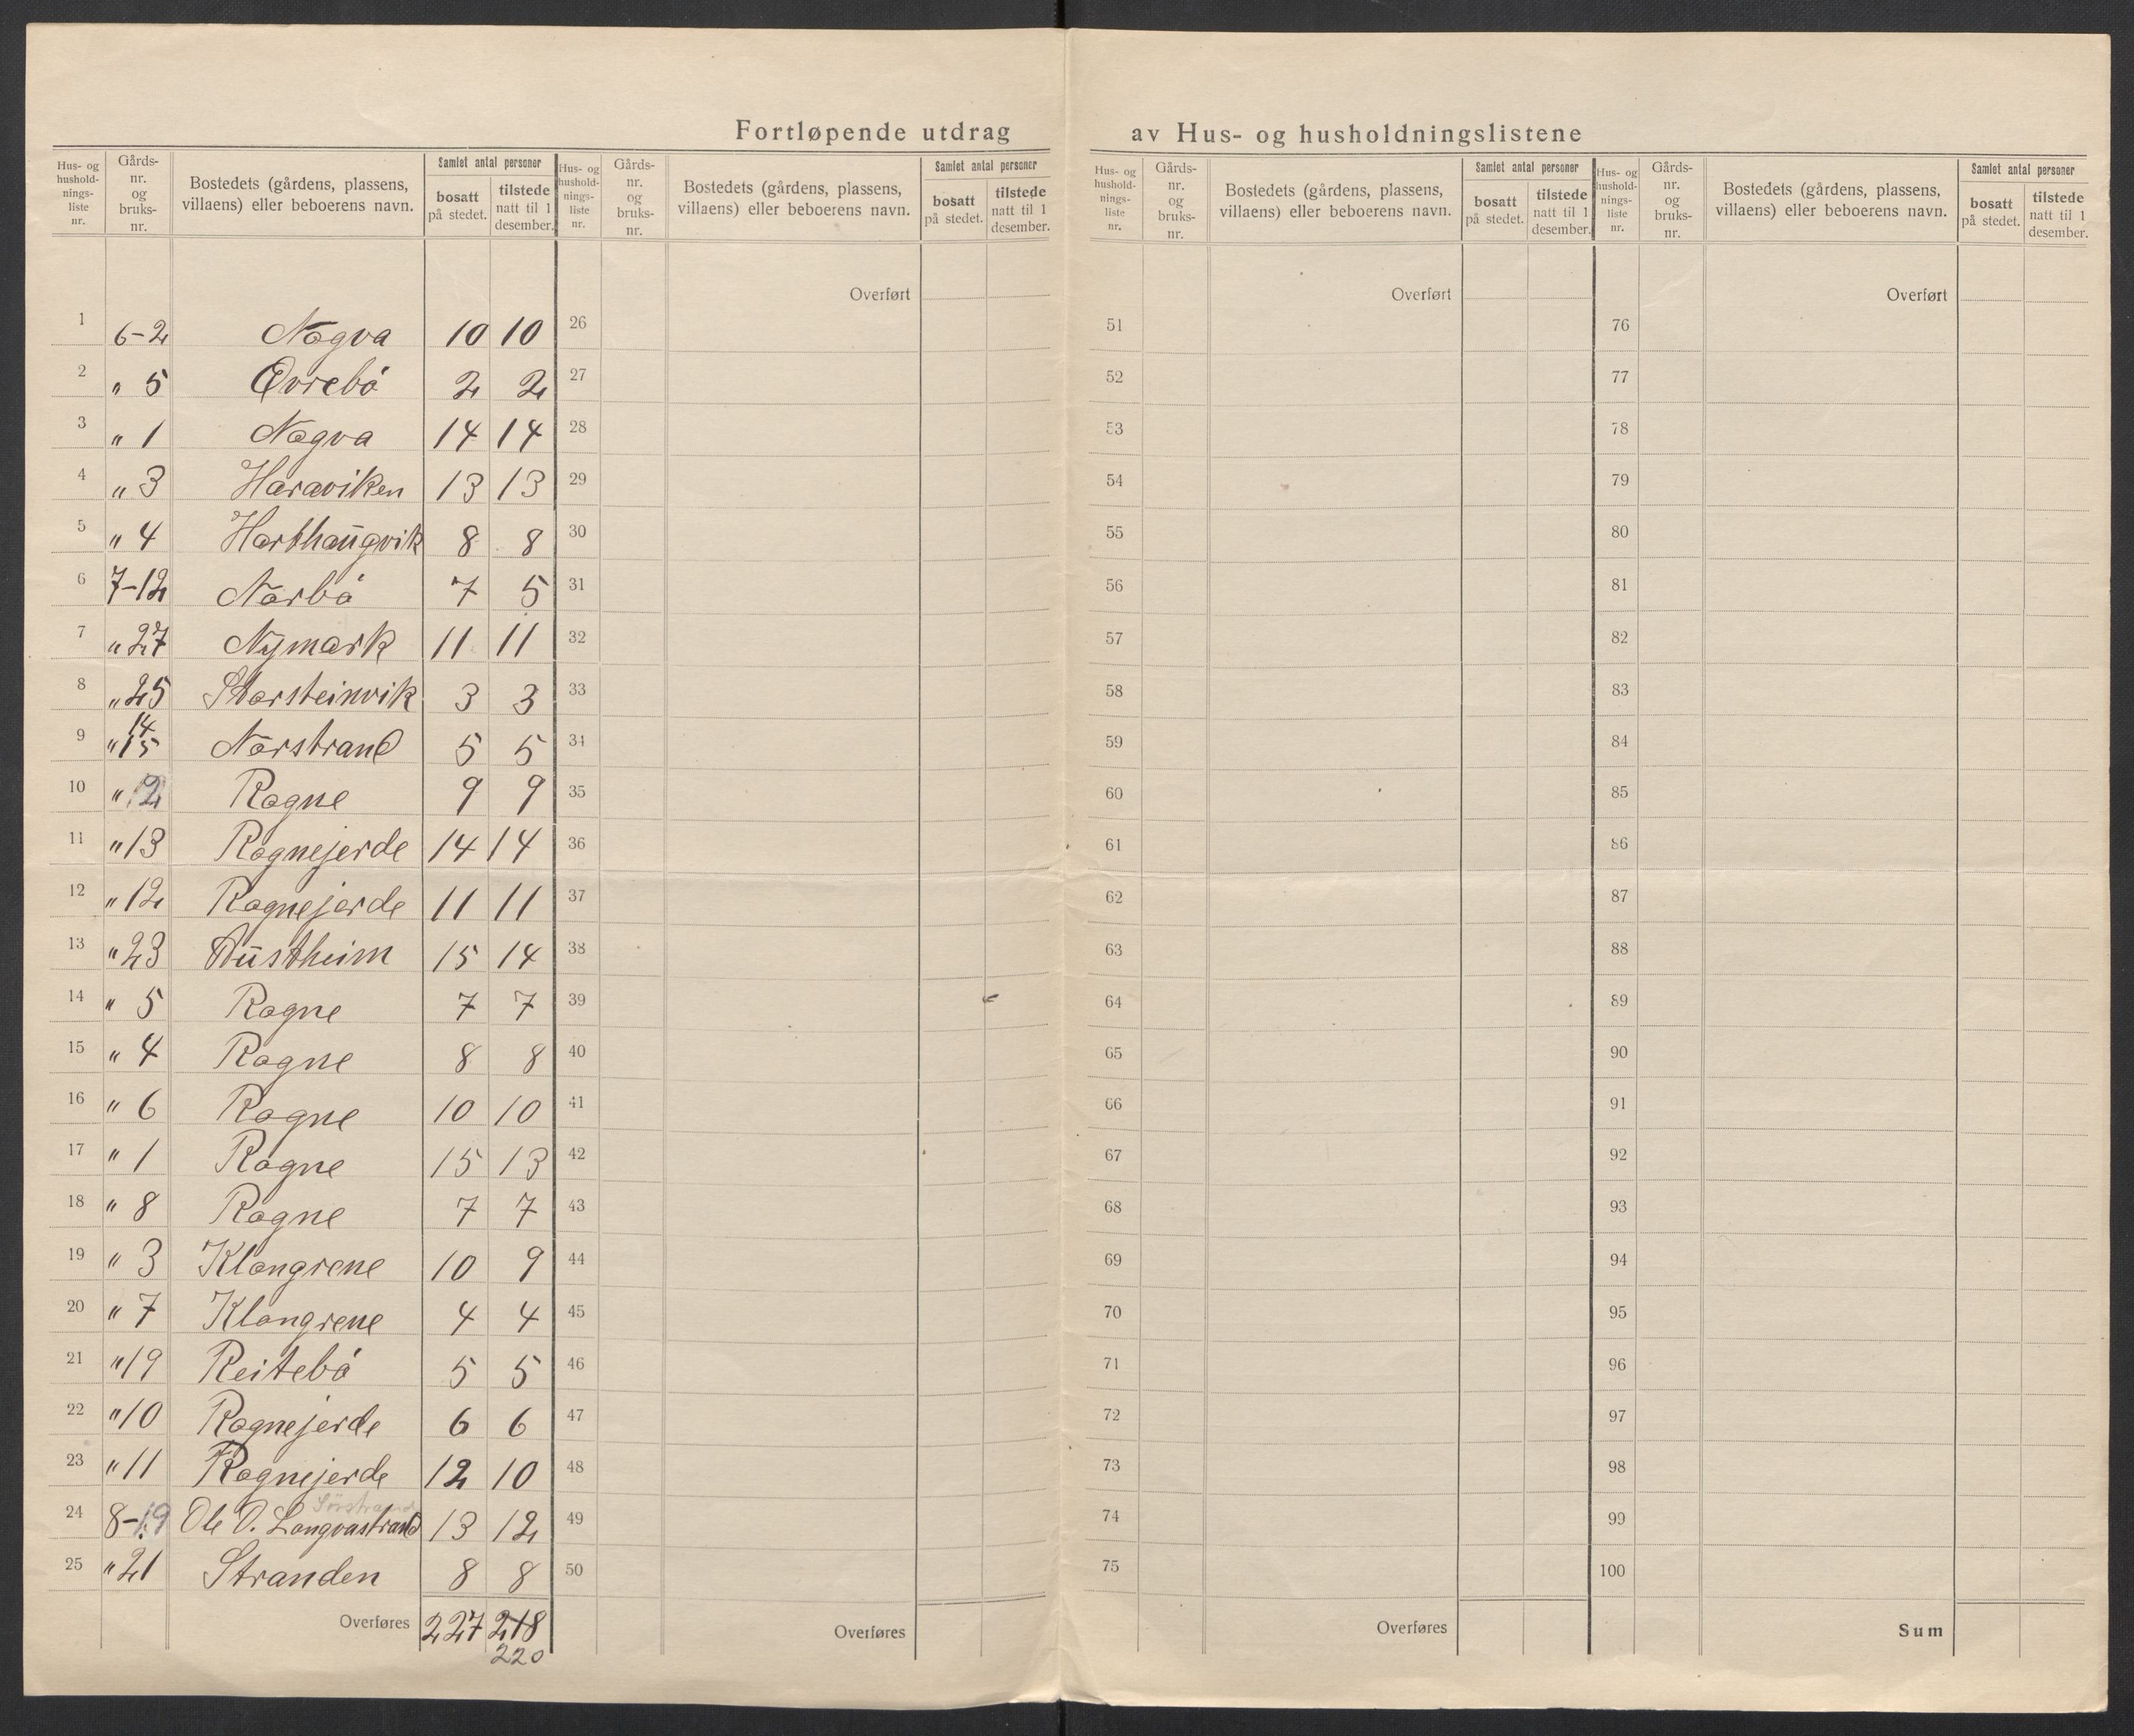 Fortløpende utdrag av Hus- og husholdningslistene
Hus- og hushold- nings- liste nr. Gårds- nr. og bruks- nr. Bostedets (gårdens, plassens, villaens) eller beboerens navn. Samlet antal personer bosatt på stedet. tilstede natt til 1 desember.
Hus- og hushold- nings- liste nr. Gårds- nr. og bruks- nr. Bostedets (gårdens, plassens, villaens) eller beboerens navn. Samlet antal personer bosatt på stedet. tilstede natt til 1 desember.
Hus- og hushold- nings- liste nr. Gårds- nr. og bruks- nr. Bostedets (gårdens, plassens, villaens) eller beboerens navn. Samlet antal personer bosatt på stedet. tilstede natt til 1 desember.
Hus- og hushold- nings- liste nr. Gårds- nr. og bruks- nr. Bostedets (gårdens, plassens, villaens) eller beboerens navn. Samlet antal personer bosatt på stedet. tilstede natt til 1 desember.
Overført Overført Overført
1 6-2 Nogva 10 10 26 51 76
2 " 5 Øvrebö 2 2 27 52 77
3 " 1 Nogva 14 14 28 53 78
4 " 3 Haraviken 13 13 29 54 79
5 " 4 Harthaugvik 8 8 30 55 80
6 7-12 Norbö 7 5 31 56 81
7 " 27 Nymark 11 11 32 57 82
8 " 25 Storsteinvik 3 3 33 58 83
9 " 14 15 Norstrand 5 5 34 59 84
10 " 2 Rogne 9 9 35 60 85
11 " 13 Rognejerde 14 14 36 61 86
12 " 12 Rognejerde 11 11 37 62 87
13 " 23 Austheim 15 14 38 63 88
14 " 5 Rogne 7 7 39 64 89
15 " 4 Rogne 8 8 40 65 90
16 " 6 Rogne 10 10 41 66 91
17 " 1 Rogne 15 13 42 67 92
18 " 8 Rogne 7 7 43 68 93
19 " 3 Klongrene 10 9 44 69 94
20 " 7 Klongrene 4 4 45 70 95
21 " 19 Reitebö 5 5 46 71 96
22 " 10 Rognejerde 6 6 47 72 97
23 " 11 Rognejerde 12 10 48 73 98
Sörstrand
24 8-19 Ole O. Longvastrand 13 12 49 74 99
25 " 21 Stranden 8 8 50 75 100
Overføres 227 218 Overføres Overføres Sum
220